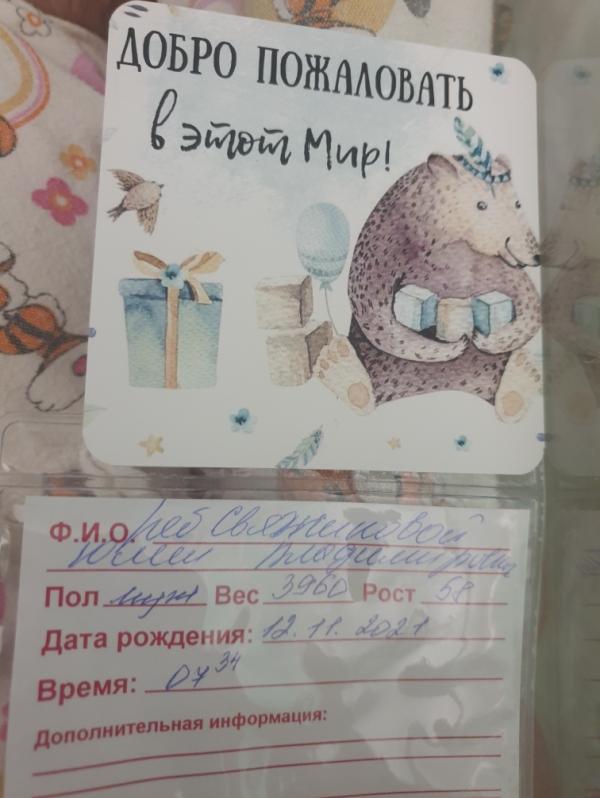 ДОБРО ПОЖАЛОВАТЬ
в этот Мир!
Ф.И.О. Реб Свяжиновой
Юлии Владимировны
Пол муж Вес 3960 Рост 58
Дата рождения: 12.11.2021
Время: 07 34
Дополнительная информация: